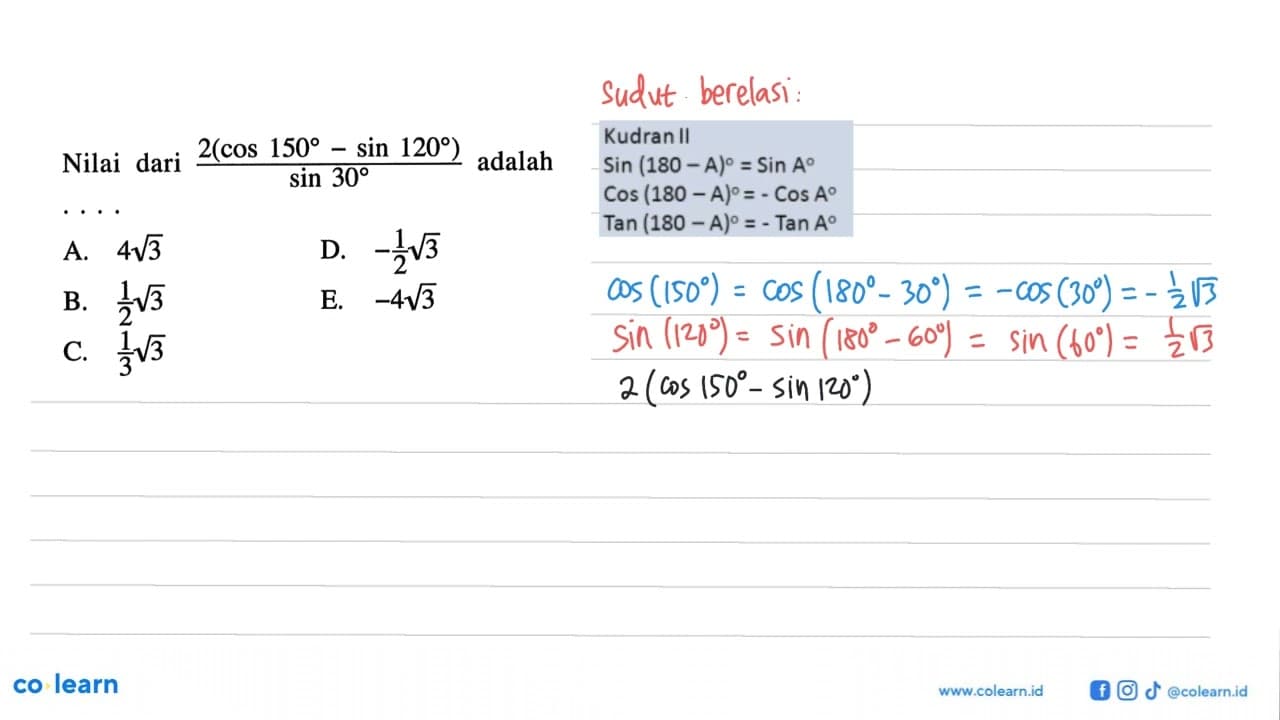 Nilai dari 2(cos 150° – sin 120°) / sin 30° adalah
. . . .
A. 4√3
B. 1/2√3
C. 1/3√3
D. –1/2√3
E. –4√3
Sudut berelasi:
Kudran II
Sin (180 – A)° = Sin A°
Cos (180 – A)° = - Cos A°
Tan (180 – A)° = - Tan A°
cos(150°) = cos(180° - 30°) = -cos(30°) = -1/2√3
sin(120°) = sin(180° - 60°) = sin(60°) = 1/2√3
2(cos 150° - sin 120°)
co learn
www.colearn.id
@colearn.id